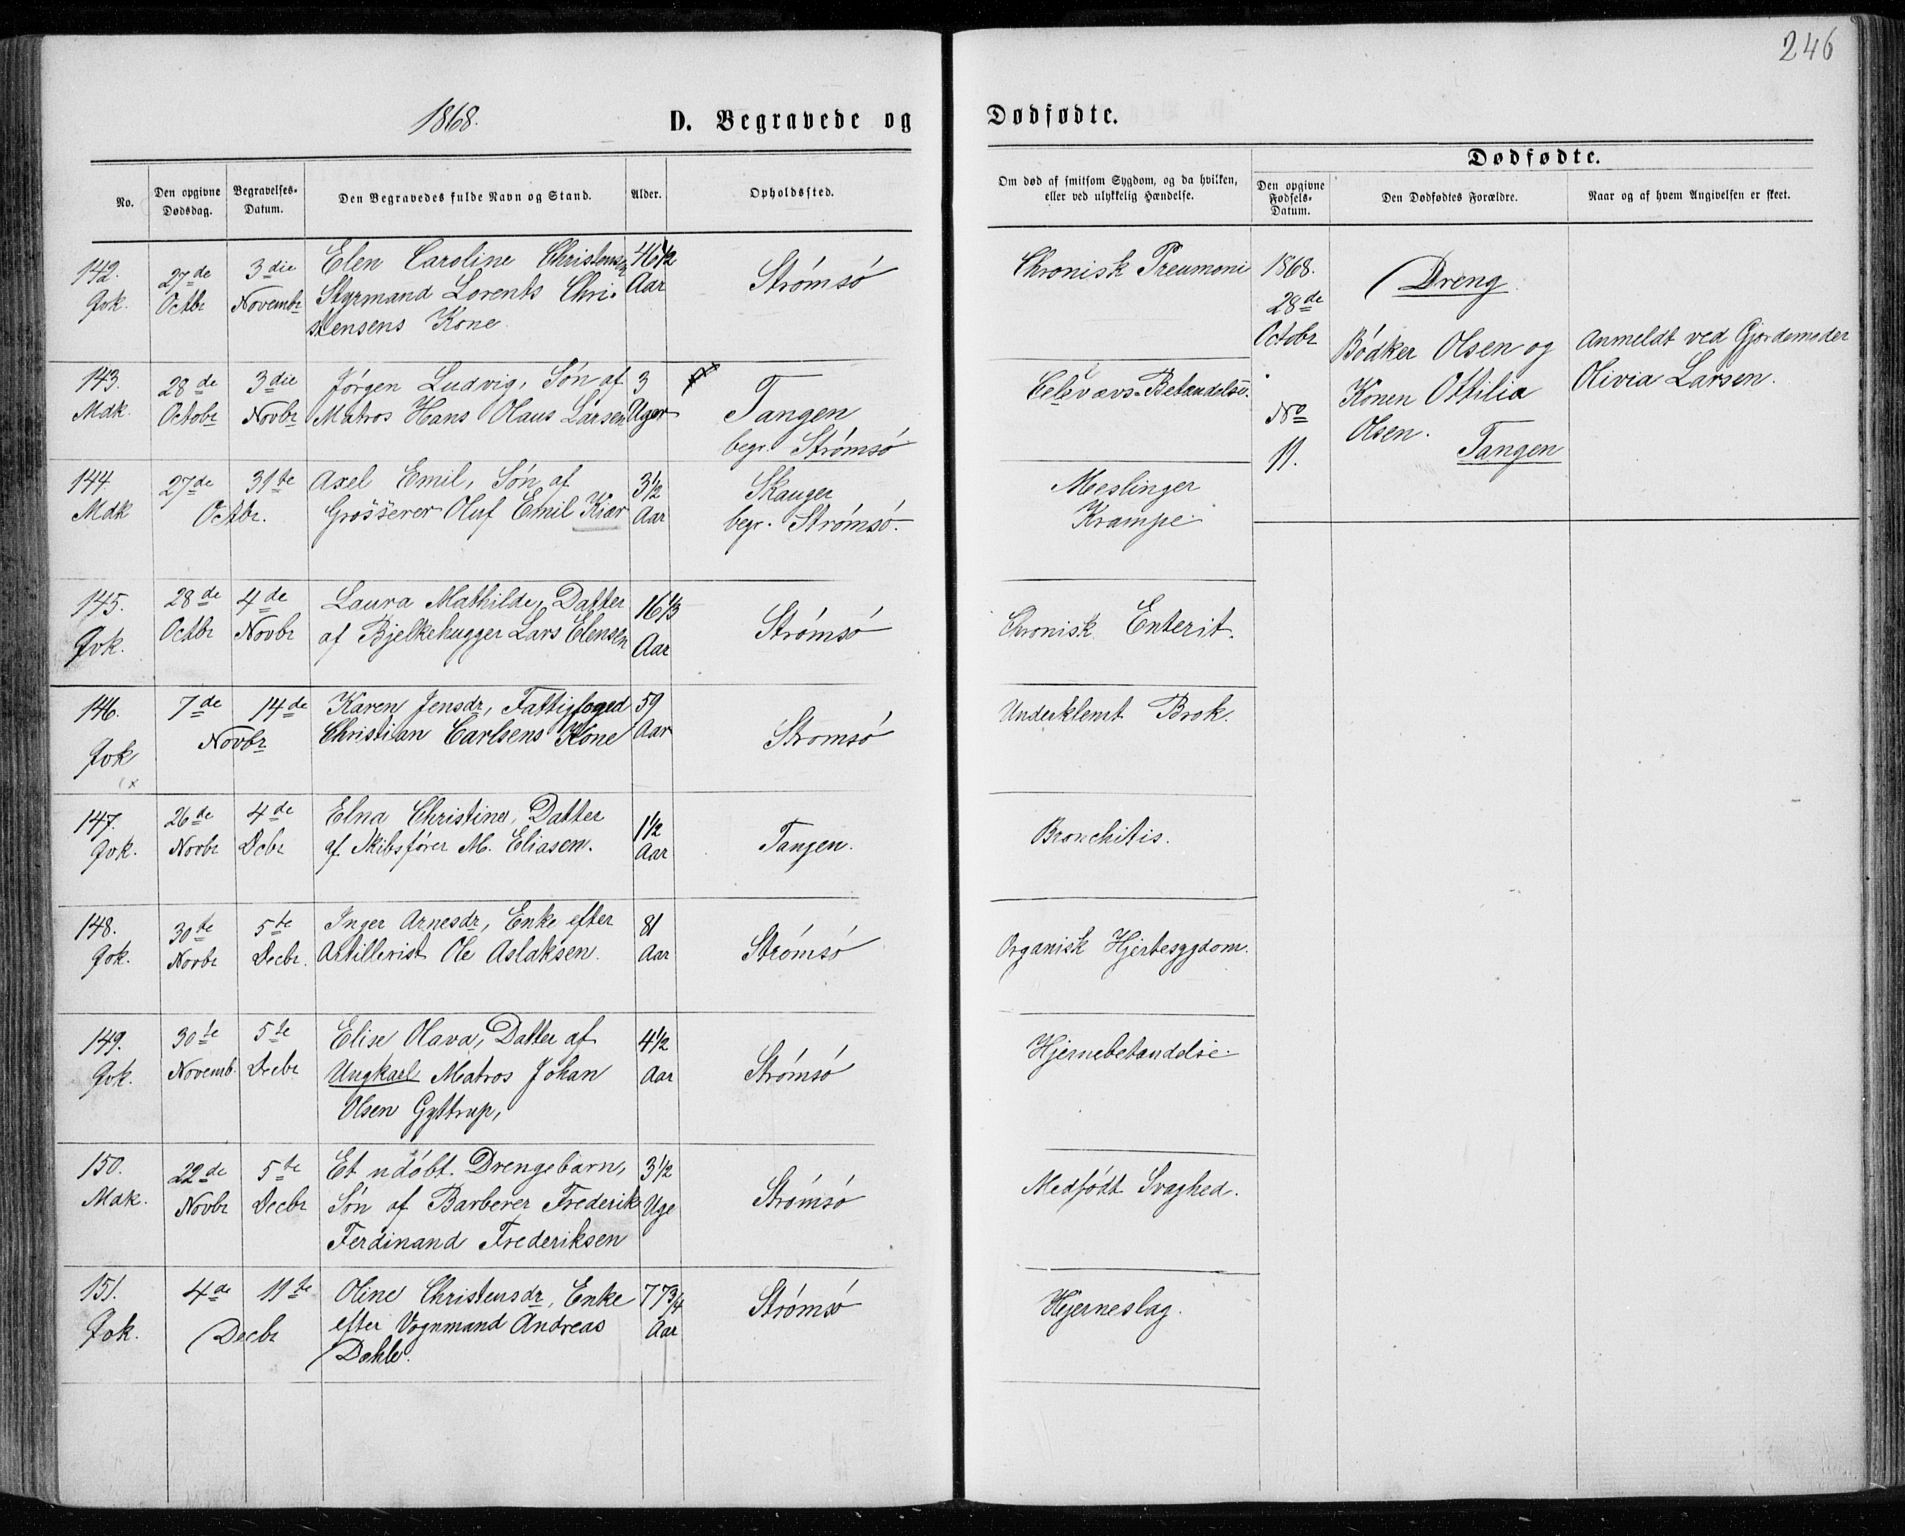 246
1868.
D. Begravede og Dødfødte.
No.
Den opgivne Dødsdag.
Begravelses-Datum.
Den Begravedes fulde Navn og Stand.
Alder.
Opholdssted.
Om død af smitsom Sygdom, og da hvilken, eller ved ulykkelig Hændelse.
Dødfødte.
Den opgivne Fødsels-Datum.
Den Dødfødtes Forældre.
Naar og af hvem Angivelsen er skeet.
142. Qvk.
27de Octbr
3die Novembr
Elen Caroline Christensen
Styrmand Lorents Chri-
stensens Kone.
46 1/2 Aar
Strömsö
Chronisk Pneumoni
143. Mdk
28de Octobr
3die Novbr
Jörgen Ludvig, Sön af
Matros Hans Olaus Larsen
3 Uger
Tangen
begr. Strömsö
Celevævs-Betændelse.
144. Mdk
27de
31te
Octbr.
Axel Emil, Sön af
Grosserer Oluf Emil Kiær
3 1/2 Aar
Skauger
begr. Strömsö.
Meslinger
Krampe.
145. Qvk.
28de Octbr
4de Novbr
Laura Mathilde, Datter
af Bjelkehugger Lars Elensen
16 1/3 Aar
Strömsö
Chronisk Enterit.
146. Qvk
7de
14de
Novbr
Karen Jensdr, Fattigfoged
Christian Carlsens Kone
59 Aar
Stromsö
Underklemt Brok.
147. Qvk.
26de Novbr
4de Dcbr
Elna Christine, Datter
af Skibsförer M. Eliasen.
1 1/2 Aar
Tangen.
Bronchitis.
148. Qvk.
30te Novbr
5te Decbr.
Inger Arnesdr, Enke efter
Artillerist Ole Aslaksen.
81 Aar
Strömsö
Organisk Hjertesygdom.
149. Qvk.
30te Novemb.
5te Decbr
Elise Olava, Datter af
Ungkarl Matros Johan
Olsen Gyttrup,
4 1/2 Aar
Strömsö
Hjernebetændelse.
150. Mdk.
22de Novbr
5te Decbr
Et udöbt Drengebarn,
Sön af Barberer Frederik
Ferdinand Frederiksen
3 1/2 Uge
Strömsö
Medfödt Svaghed.
151. Qvk.
4de
11te
Decbr
Oline Christensdr, Enke
efter Vognmand Andreas
Dahle.
77 3/4 Aar
Strömsö
Hjerneslag.
1868.
28de
Octobr
No
11.
Dreng.
Bödker Olsen og
Konen Ottilia
Olsen.
Tangen
Anmeldt ved Gjordemoder
Olivia Larsen.